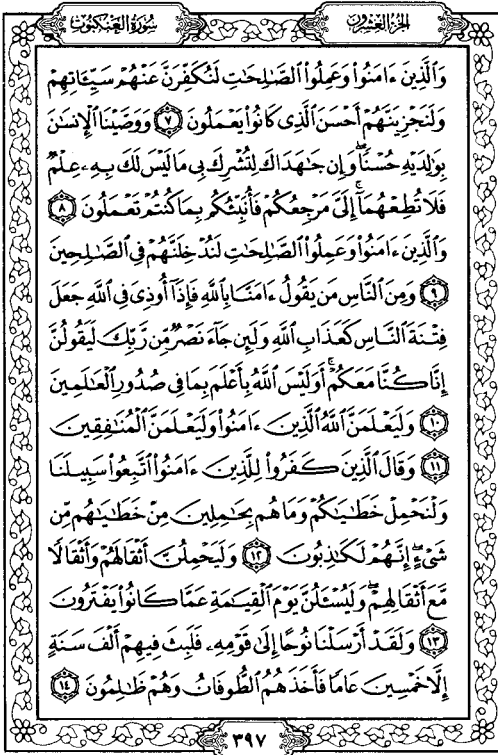 سورة العنكبوت الجزء العشرون
وَٱلَّذِينَ ءَامَنُوا۟ وَعَمِلُوا۟ ٱلصَّـٰلِحَـٰتِ لَنُكَفِّرَنَّ عَنْهُمْ سَيِّـَٔاتِهِمْ
وَلَنَجْزِيَنَّهُمْ أَحْسَنَ ٱلَّذِى كَانُوا۟ يَعْمَلُونَ ٧ وَوَصَّيْنَا ٱلْإِنسَـٰنَ
بِوَٰلِدَيْهِ حُسْنًا ۖ وَإِن جَـٰهَدَاكَ لِتُشْرِكَ بِى مَا لَيْسَ لَكَ بِهِۦ عِلْمٌ
فَلَا تُطِعْهُمَآ ۚ إِلَىَّ مَرْجِعُكُمْ فَأُنَبِّئُكُم بِمَا كُنتُمْ تَعْمَلُونَ ٨
وَٱلَّذِينَ ءَامَنُوا۟ وَعَمِلُوا۟ ٱلصَّـٰلِحَـٰتِ لَنُدْخِلَنَّهُمْ فِى ٱلصَّـٰلِحِينَ
٩ وَمِنَ ٱلنَّاسِ مَن يَقُولُ ءَامَنَّا بِٱللَّهِ فَإِذَآ أُوذِىَ فِى ٱللَّهِ جَعَلَ
فِتْنَةَ ٱلنَّاسِ كَعَذَابِ ٱللَّهِ وَلَئِن جَآءَ نَصْرٌ مِّن رَّبِّكَ لَيَقُولُنَّ
إِنَّا كُنَّا مَعَكُمْ ۚ أَوَلَيْسَ ٱللَّهُ بِأَعْلَمَ بِمَا فِى صُدُورِ ٱلْعَـٰلَمِينَ
١٠ وَلَيَعْلَمَنَّ ٱللَّهُ ٱلَّذِينَ ءَامَنُوا۟ وَلَيَعْلَمَنَّ ٱلْمُنَـٰفِقِينَ
١١ وَقَالَ ٱلَّذِينَ كَفَرُوا۟ لِلَّذِينَ ءَامَنُوا۟ ٱتَّبِعُوا۟ سَبِيلَنَا
وَلْنَحْمِلْ خَطَـٰيَـٰكُمْ وَمَا هُم بِحَـٰمِلِينَ مِنْ خَطَـٰيَـٰهُم مِّن
شَىْءٍ ۖ إِنَّهُمْ لَكَـٰذِبُونَ ١٢ وَلَيَحْمِلُنَّ أَثْقَالَهُمْ وَأَثْقَالًا
مَّعَ أَثْقَالِهِمْ ۖ وَلَيُسْـَٔلُنَّ يَوْمَ ٱلْقِيَـٰمَةِ عَمَّا كَانُوا۟ يَفْتَرُونَ
١٣ وَلَقَدْ أَرْسَلْنَا نُوحًا إِلَىٰ قَوْمِهِۦ فَلَبِثَ فِيهِمْ أَلْفَ سَنَةٍ
إِلَّا خَمْسِينَ عَامًا فَأَخَذَهُمُ ٱلطُّوفَانُ وَهُمْ ظَـٰلِمُونَ ١٤
٣٩٧